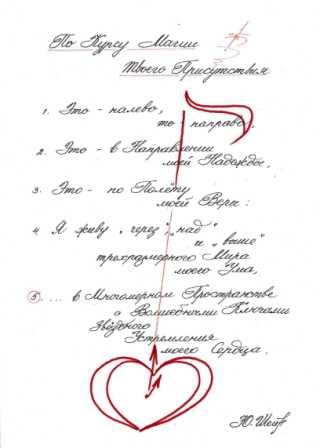 По Курсу Магии
Твоего Присутствия
1. Это - налево,
то - направо,
2. Это - в Направлении
моей Надежды,
3. Это - по Полёту
моей Веры:
4. Я живу „через", „над"
и „выше"
трехразмерного Мира
моего Ума,
5. ... в Многомерном Пространстве
с Волшебными Ключами
Звёздного
Устремления
моего Сердца.